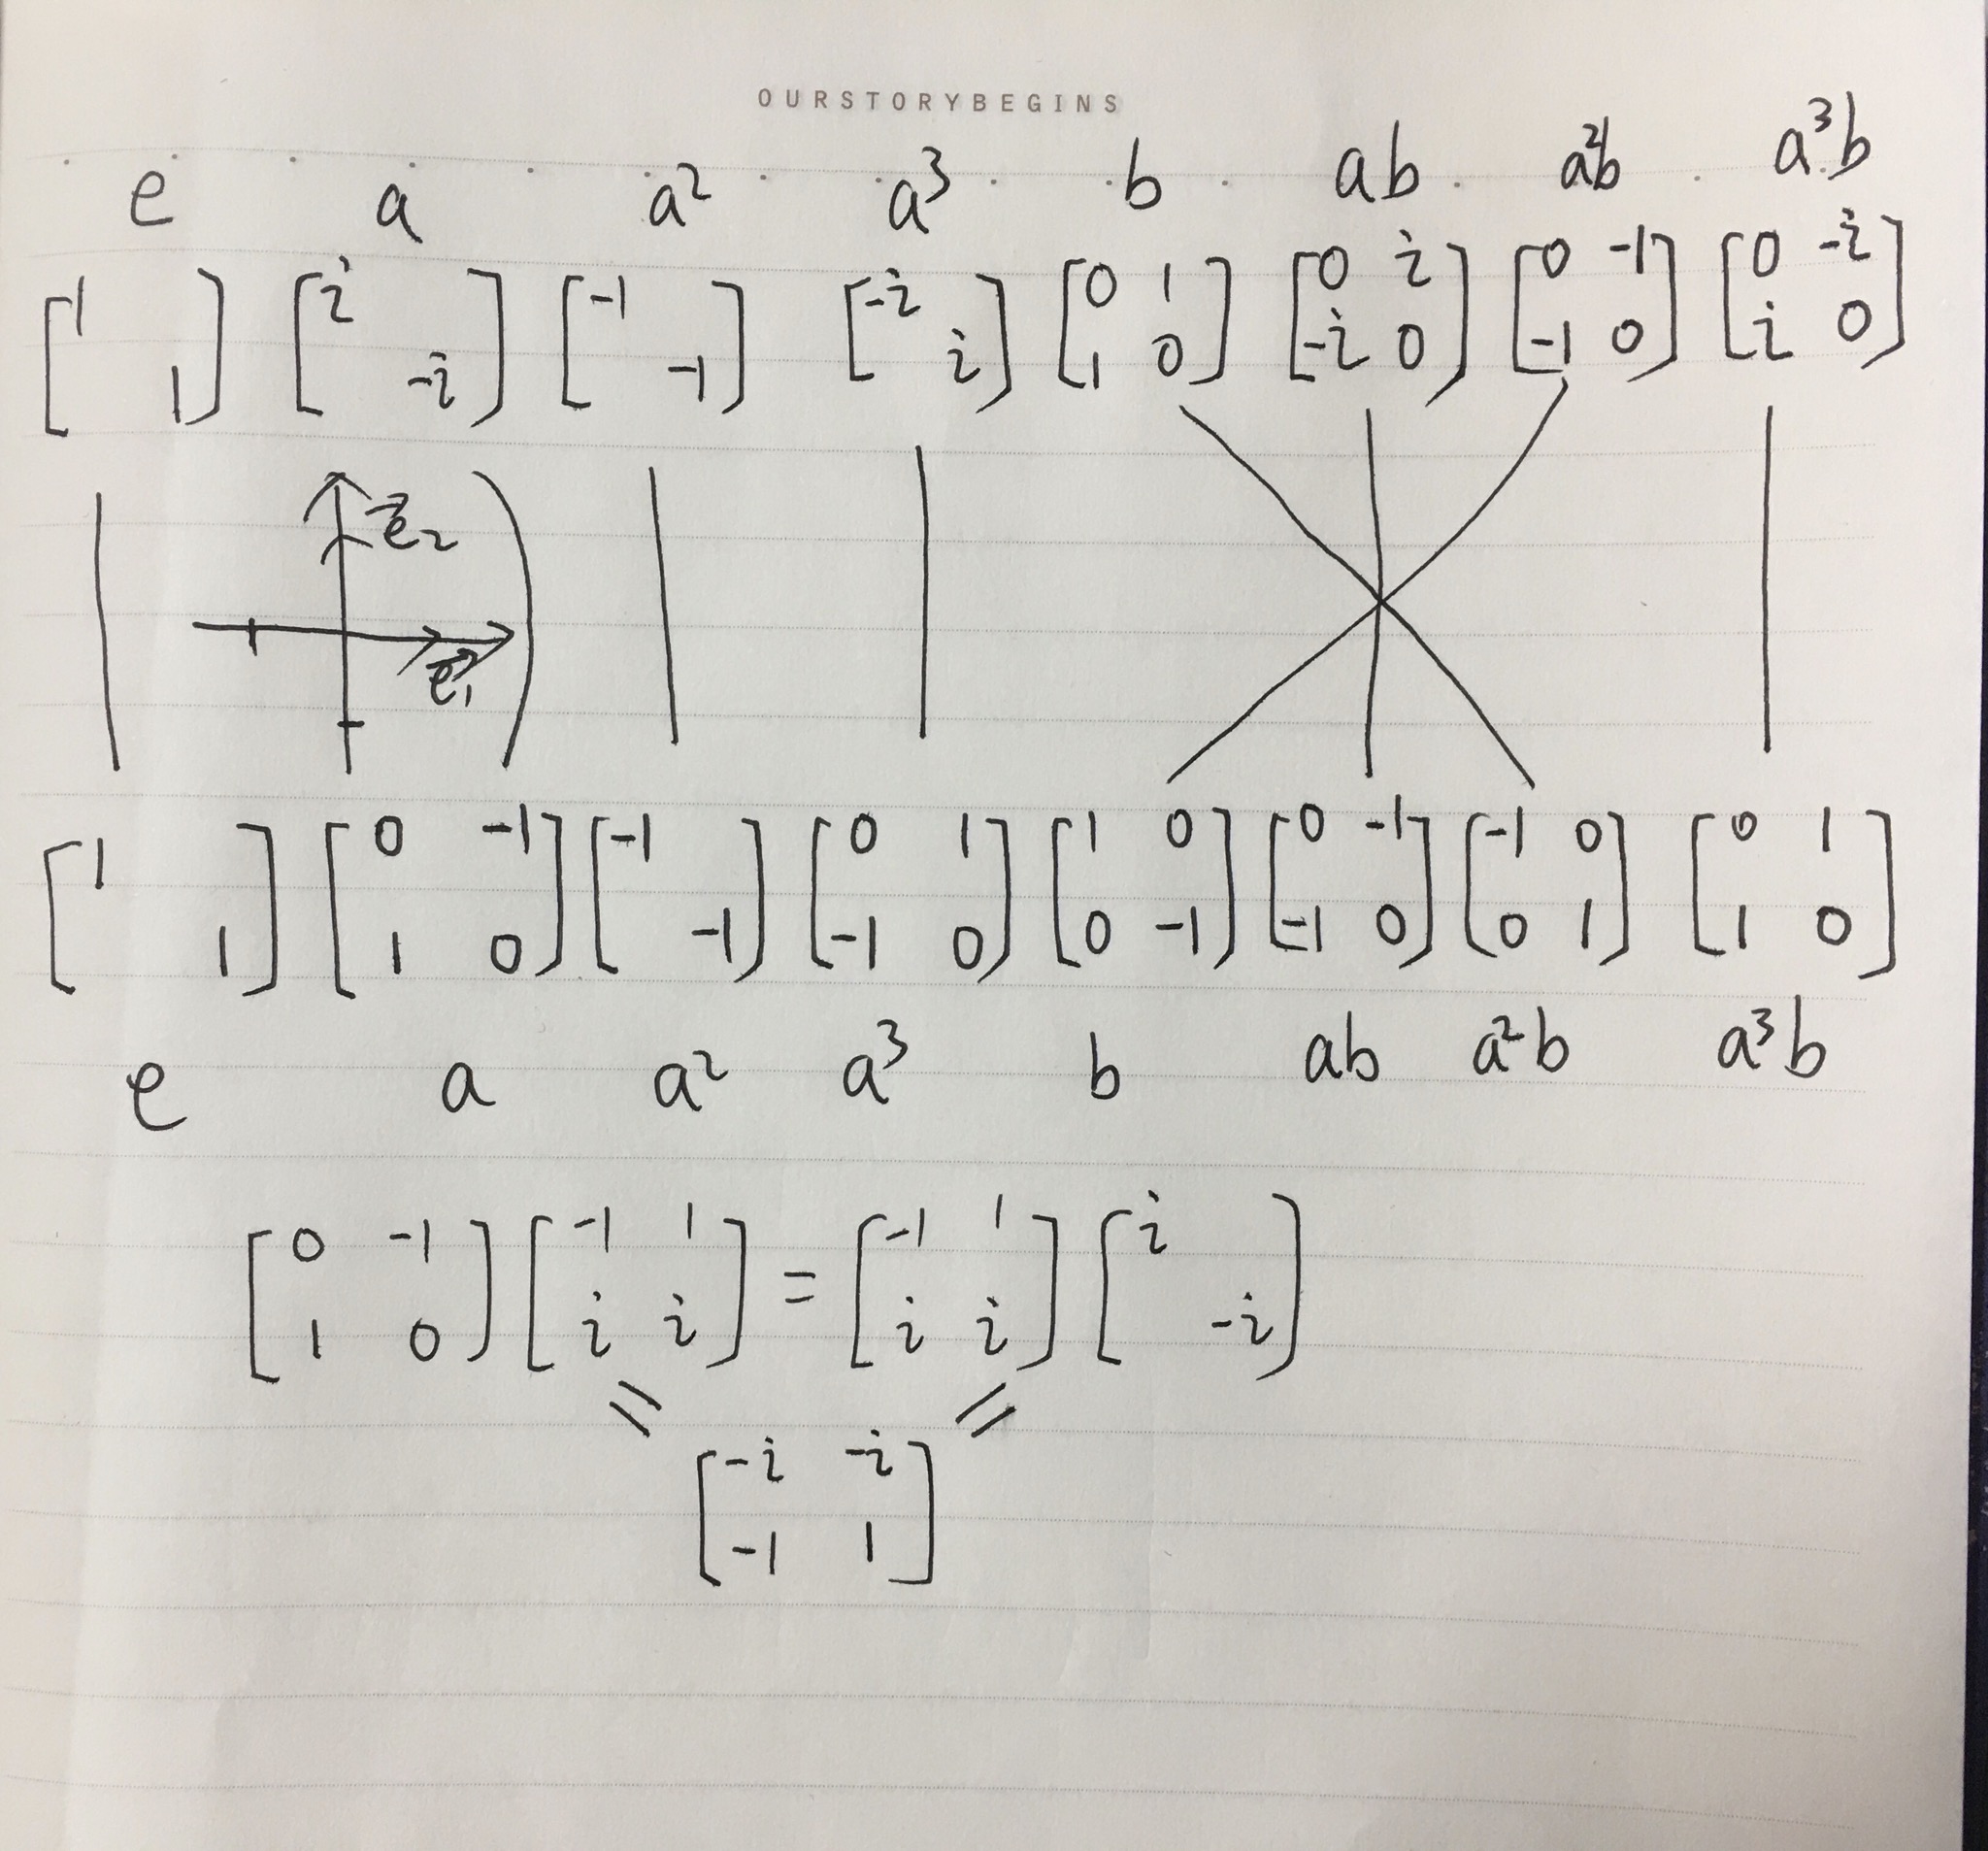 OURSTORYBEGINS
e a a² a³ b ab a²b a³b
[1 1] [i -i] [-1 -1] [-i i] [0 1 1 0] [0 i -i 0] [0 -1 -1 0] [0 -i i 0]
e⃗₂
e⃗₁
[1 1] [0 -1 1 0] [-1 -1] [0 1 -1 0] [1 0 0 -1] [0 -1 -1 0] [-1 0 0 1] [0 1 1 0]
e a a² a³ b ab a²b a³b
[0 -1 1 0] [-1 1 i i] = [-1 1 i i] [i -i]
= =
[-i -i -1 1]